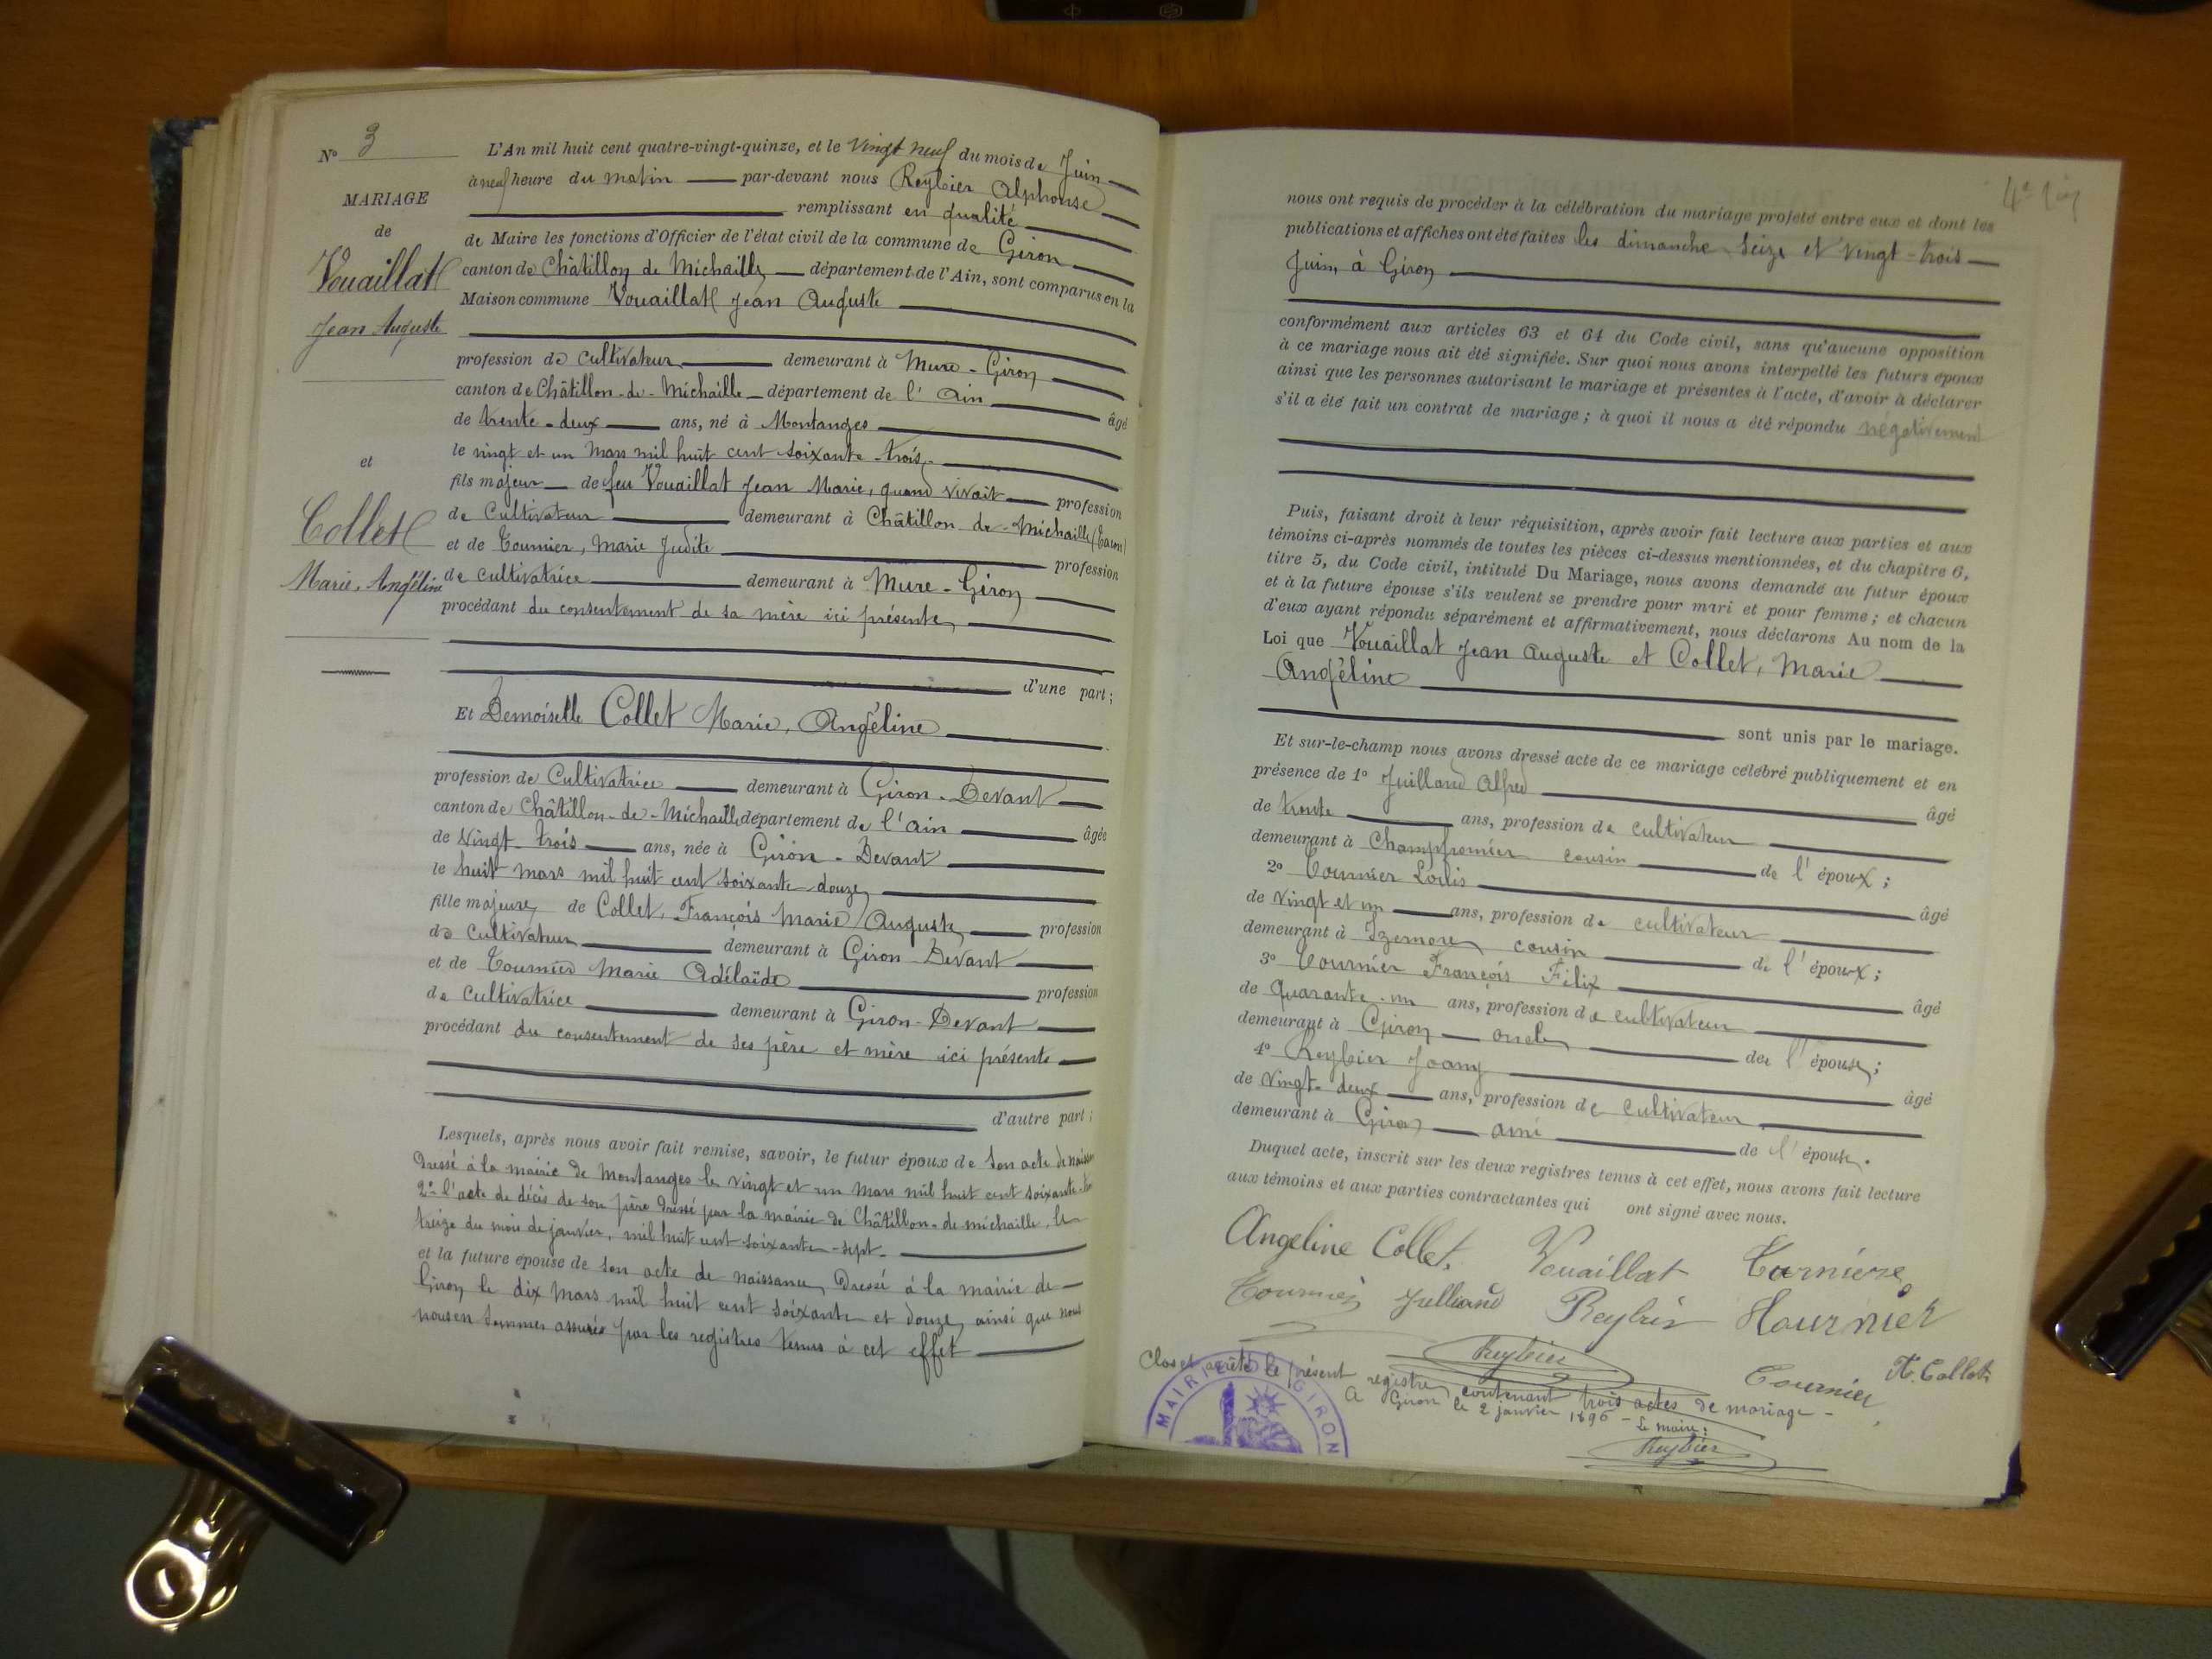 N° 3
MARIAGE
de
Vouaillat
Jean Auguste
et
Collet
Marie, Angéline
L'An mil huit cent quatre-vingt-quinze, et le vingt neuf du mois de Juin
à neuf heure du matin par-devant nous Reybier Alphonse
remplissant en qualité
de Maire les fonctions d'Officier de l'état civil de la commune de Giron
canton de Châtillon de Michaille département de l'Ain, sont comparus en la
Maison commune Vouaillat Jean Auguste
profession de cultivateur demeurant à Mure-Giron
canton de Châtillon-de-Michaille département de l'Ain âgé
de trente-deux ans, né à Montanges
le vingt et un mars mil huit cent soixante-trois
fils majeur de feu Vouaillat Jean Marie, quand vivait profession
de Cultivateur demeurant à Châtillon-de-Michaille
et de Tournier, Marie Judite profession
de cultivatrice demeurant à Mure-Giron
procédant du consentement de sa mère ici présente
d'une part;
Et Demoiselle Collet Marie, Angéline
profession de Cultivatrice demeurant à Giron-Devant
canton de Châtillon-de-Michaille département de l'Ain âgée
de vingt-trois ans, née à Giron-Devant
le huit mars mil huit cent soixante-douze
fille majeure de Collet, François Marie Auguste profession
de Cultivateur demeurant à Giron-Devant
et de Tournier Marie Adélaïde profession
de Cultivatrice demeurant à Giron-Devant
procédant du consentement de ses père et mère ici présente
d'autre part;
Lesquels, après nous avoir fait remise, savoir, le futur époux de son acte de
dressé à la mairie de Montanges le vingt et un mars mil huit cent soixante
2° l'acte de décès de son père dressé par la mairie de Châtillon-de-michaille, le
treize du mois de janvier, mil huit cent soixante-sept.
et la future épouse de son acte de naissance, dressé à la mairie de
Giron le dix mars mil huit cent soixante et douze, ainsi que nous
nous en sommes assurés par les registres tenus à cet effet
nous ont requis de procéder à la célébration du mariage projeté entre eux et dont les
publications et affiches ont été faites les dimanche seize et vingt-trois
Juin, à Giron
conformément aux articles 63 et 64 du Code civil, sans qu'aucune opposition
à ce mariage nous ait été signifiée. Sur quoi nous avons interpellé les futurs époux
ainsi que les personnes autorisant le mariage et présentes à l'acte, d'avoir à déclarer
s'il a été fait un contrat de mariage; à quoi il nous a été répondu négativement
Puis, faisant droit à leur réquisition, après avoir fait lecture aux parties et aux
témoins ci-après nommés de toutes les pièces ci-dessus mentionnées, et du chapitre 6,
titre 5, du Code civil, intitulé Du Mariage, nous avons demandé au futur époux
et à la future épouse s'ils veulent se prendre pour mari et pour femme; et chacun
d'eux ayant répondu séparément et affirmativement, nous déclarons Au nom de la
Loi que Vouaillat Jean Auguste et Collet, Marie
Angéline
sont unis par le mariage.
Et sur-le-champ nous avons dressé acte de ce mariage célébré publiquement et en
présence de 1° Juilland Alfred âgé
de trente ans, profession de cultivateur
demeurant à Champfromier cousin de l'époux;
2° Tournier Louis âgé
de vingt et un ans, profession de cultivateur
demeurant à Izernore cousin de l'époux;
3° Tournier François Félix âgé
de quarante-un ans, profession de cultivateur
demeurant à Giron oncle de l'épouse;
4° Reybier Joany âgé
de vingt-deux ans, profession de cultivateur
demeurant à Giron ami de l'épouse.
Duquel acte, inscrit sur les deux registres tenus à cet effet, nous avons fait lecture
aux témoins et aux parties contractantes qui ont signé avec nous.
Angeline Collet, Vouaillat
Tournier Julliand Reybier
Reybier
Tournier A. Collet
Clos et arrêté le présent registre contenant trois actes de mariage -
A Giron le 2 janvier 1896 - Le maire:
Reybier
MAIRIE DE GIRON